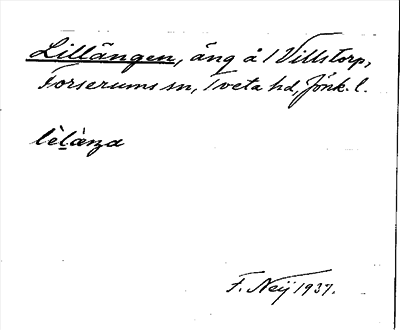 Lillängen, äng å 1 Villstorp,
Forserums sn, Tveta hd, Jönk. l.
lèl̲àŋa
F. Neij 1937.